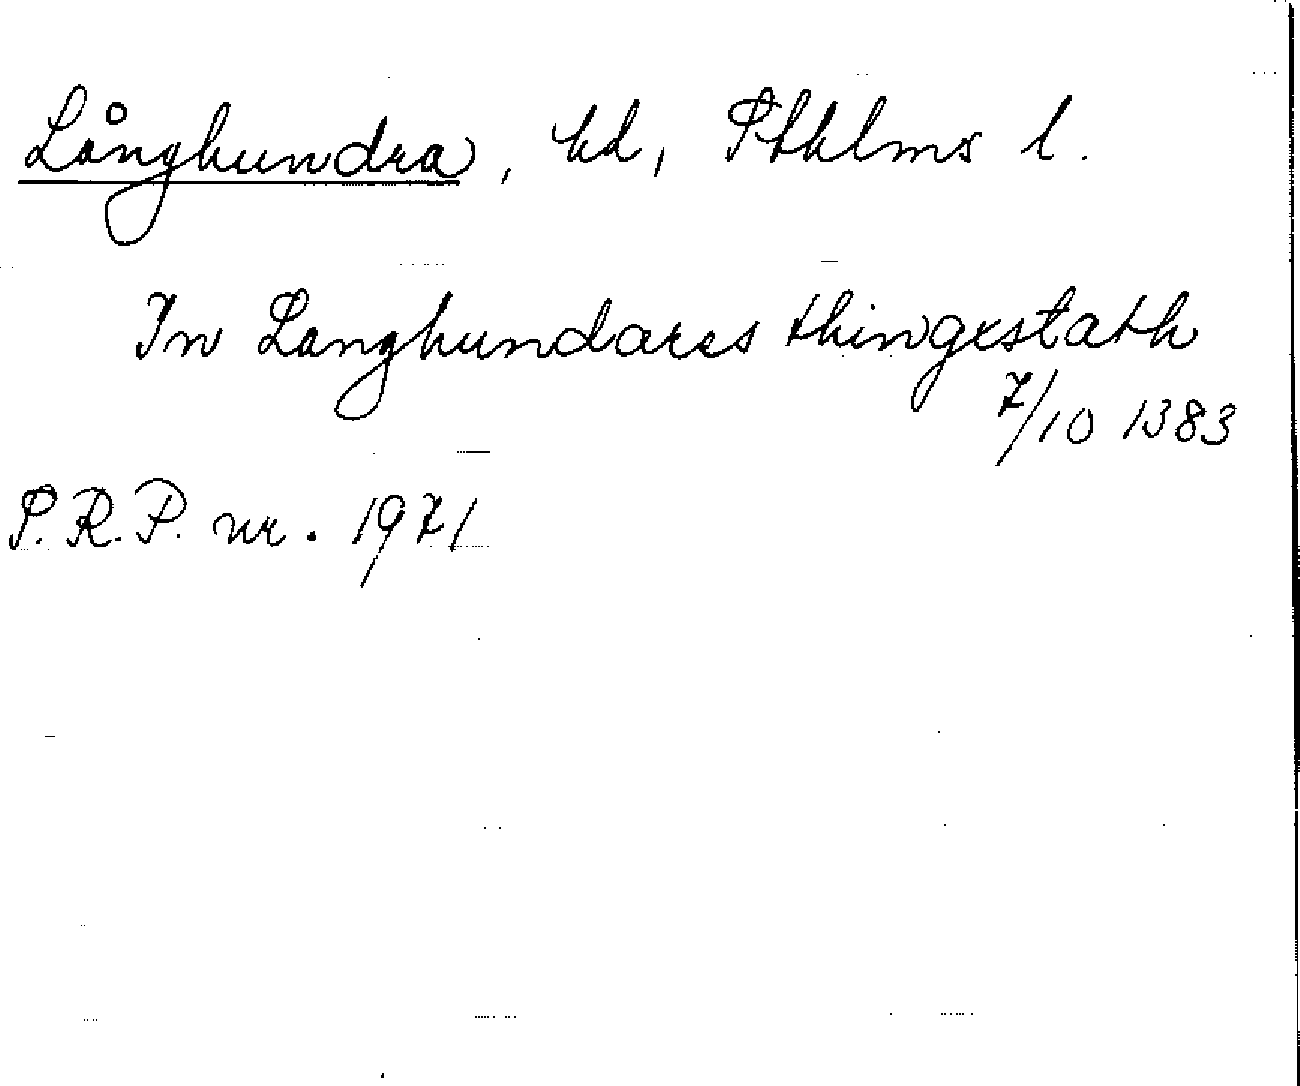 Långhundra, hd, Sthlms l.
In Langhundares thingestath
7/10 1383
S.R.P. nr. 1971